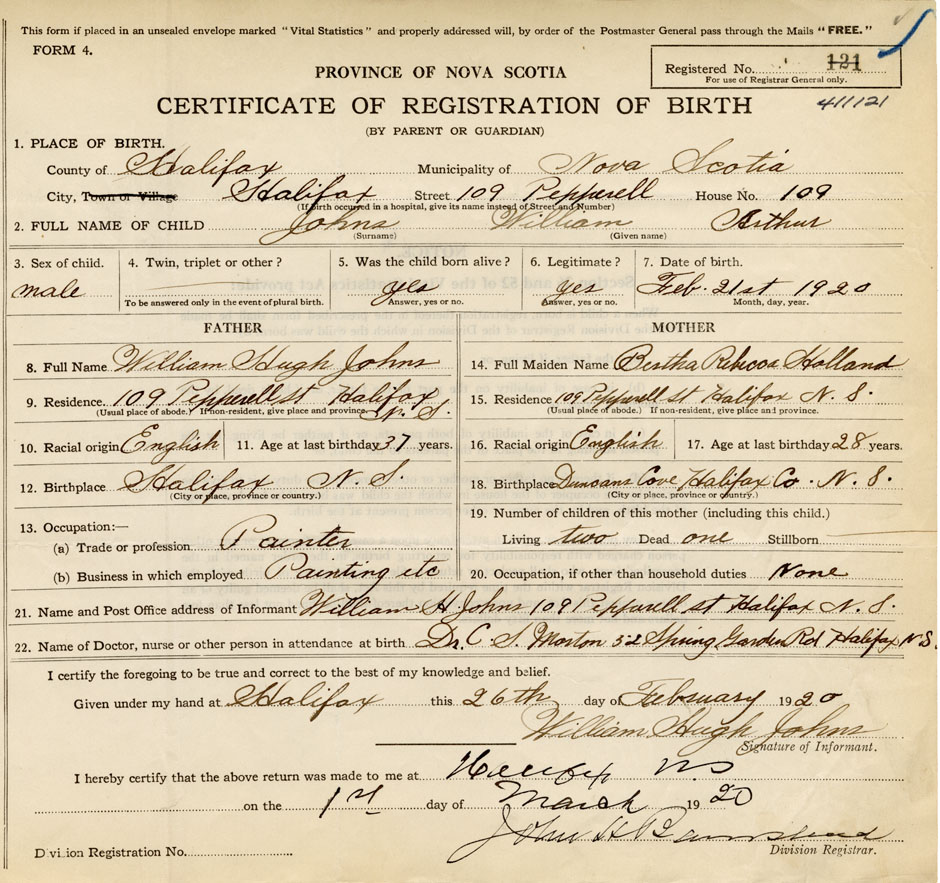 This form if placed in an unsealed envelope marked "Vital Statistics" and properly addressed will, by order of the Postmaster General pass through the Mails "FREE."
FORM 4.
Registered No. 121
For use of Registrar General only.
PROVINCE OF NOVA SCOTIA
CERTIFICATE OF REGISTRATION OF BIRTH
411121
(BY PARENT OR GUARDIAN)
1. PLACE OF BIRTH.
County of Halifax Municipality of Nova Scotia
City, Town or Village Halifax Street 109 Pepperell House No. 109
(If birth occurred in a hospital, give its name instead of Street and Number)
2. FULL NAME OF CHILD Johns William Arthur
(Surname) (Given name)
3. Sex of child. 4. Twin, triplet or other? 5. Was the child born alive? 6. Legitimate? 7. Date of birth.
male yes yes Feb. 21st 1920
To be answered only in the event of plural birth. Answer, yes or no. Answer, yes or no. Month, day, year.
FATHER MOTHER
8. Full Name William Hugh Johns 14. Full Maiden Name Bertha Rebecca Holland
9. Residence. 109 Pepperell st Halifax N. S. 15. Residence 109 Pepperell st Halifax N. S.
(Usual place of abode.) If non-resident, give place and province. (Usual place of abode.) If non-resident, give place and province.
10. Racial origin English 11. Age at last birthday 37 years. 16. Racial origin English 17. Age at last birthday 28 years.
12. Birthplace Halifax N. S. 18. Birthplace Duncans Cove Halifax Co. N. S.
(City or place, province or country.) (City or place, province or country.)
13. Occupation:— 19. Number of children of this mother (including this child.)
(a) Trade or profession Painter Living two Dead one Stillborn
(b) Business in which employed Painting etc 20. Occupation, if other than household duties None
21. Name and Post Office address of Informant William H. Johns 109 Pepperell st Halifax N. S.
22. Name of Doctor, nurse or other person in attendance at birth Dr. C. S. Morton 32 Spring Garden Rd Halifax N S.
I certify the foregoing to be true and correct to the best of my knowledge and belief.
Given under my hand at Halifax this 26th day of February 1920
William Hugh Johns
Signature of Informant.
I hereby certify that the above return was made to me at Halifax NS
on the 1st day of March 1920
John H
Division Registration No. Division Registrar.